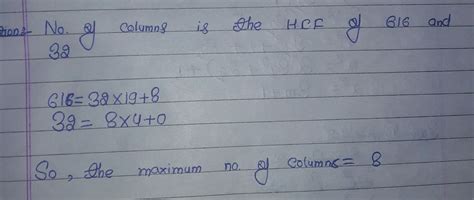 tion:- No. of columns is the HCF of 616 and
32
616=32×19+8
32= 8×4+0
So, the maximum no. of columns= 8